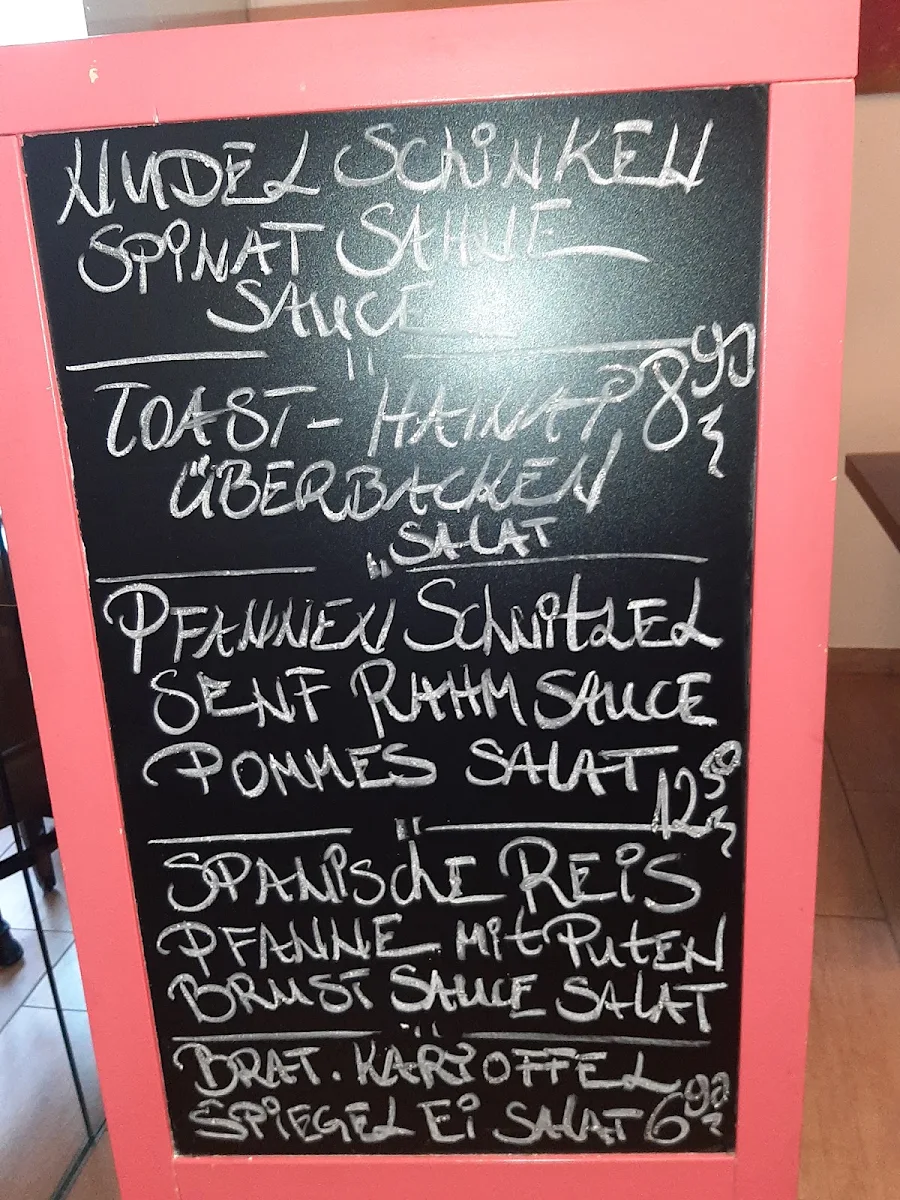 NUDEL SCHINKEN
SPINAT SAHNE
SAUCE
"
TOAST - HAWAI 8 90
ÜBERBACKEN
"SALAT
PFANNEN SCHNITZEL
SENF RAHM SAUCE
POMMES SALAT 12 50
"
SPANISCHE REIS
PFANNE MIT PUTEN
BRUST SAUCE SALAT
"
BRAT. KARTOFFEL
SPIEGEL EI SALAT 6 90